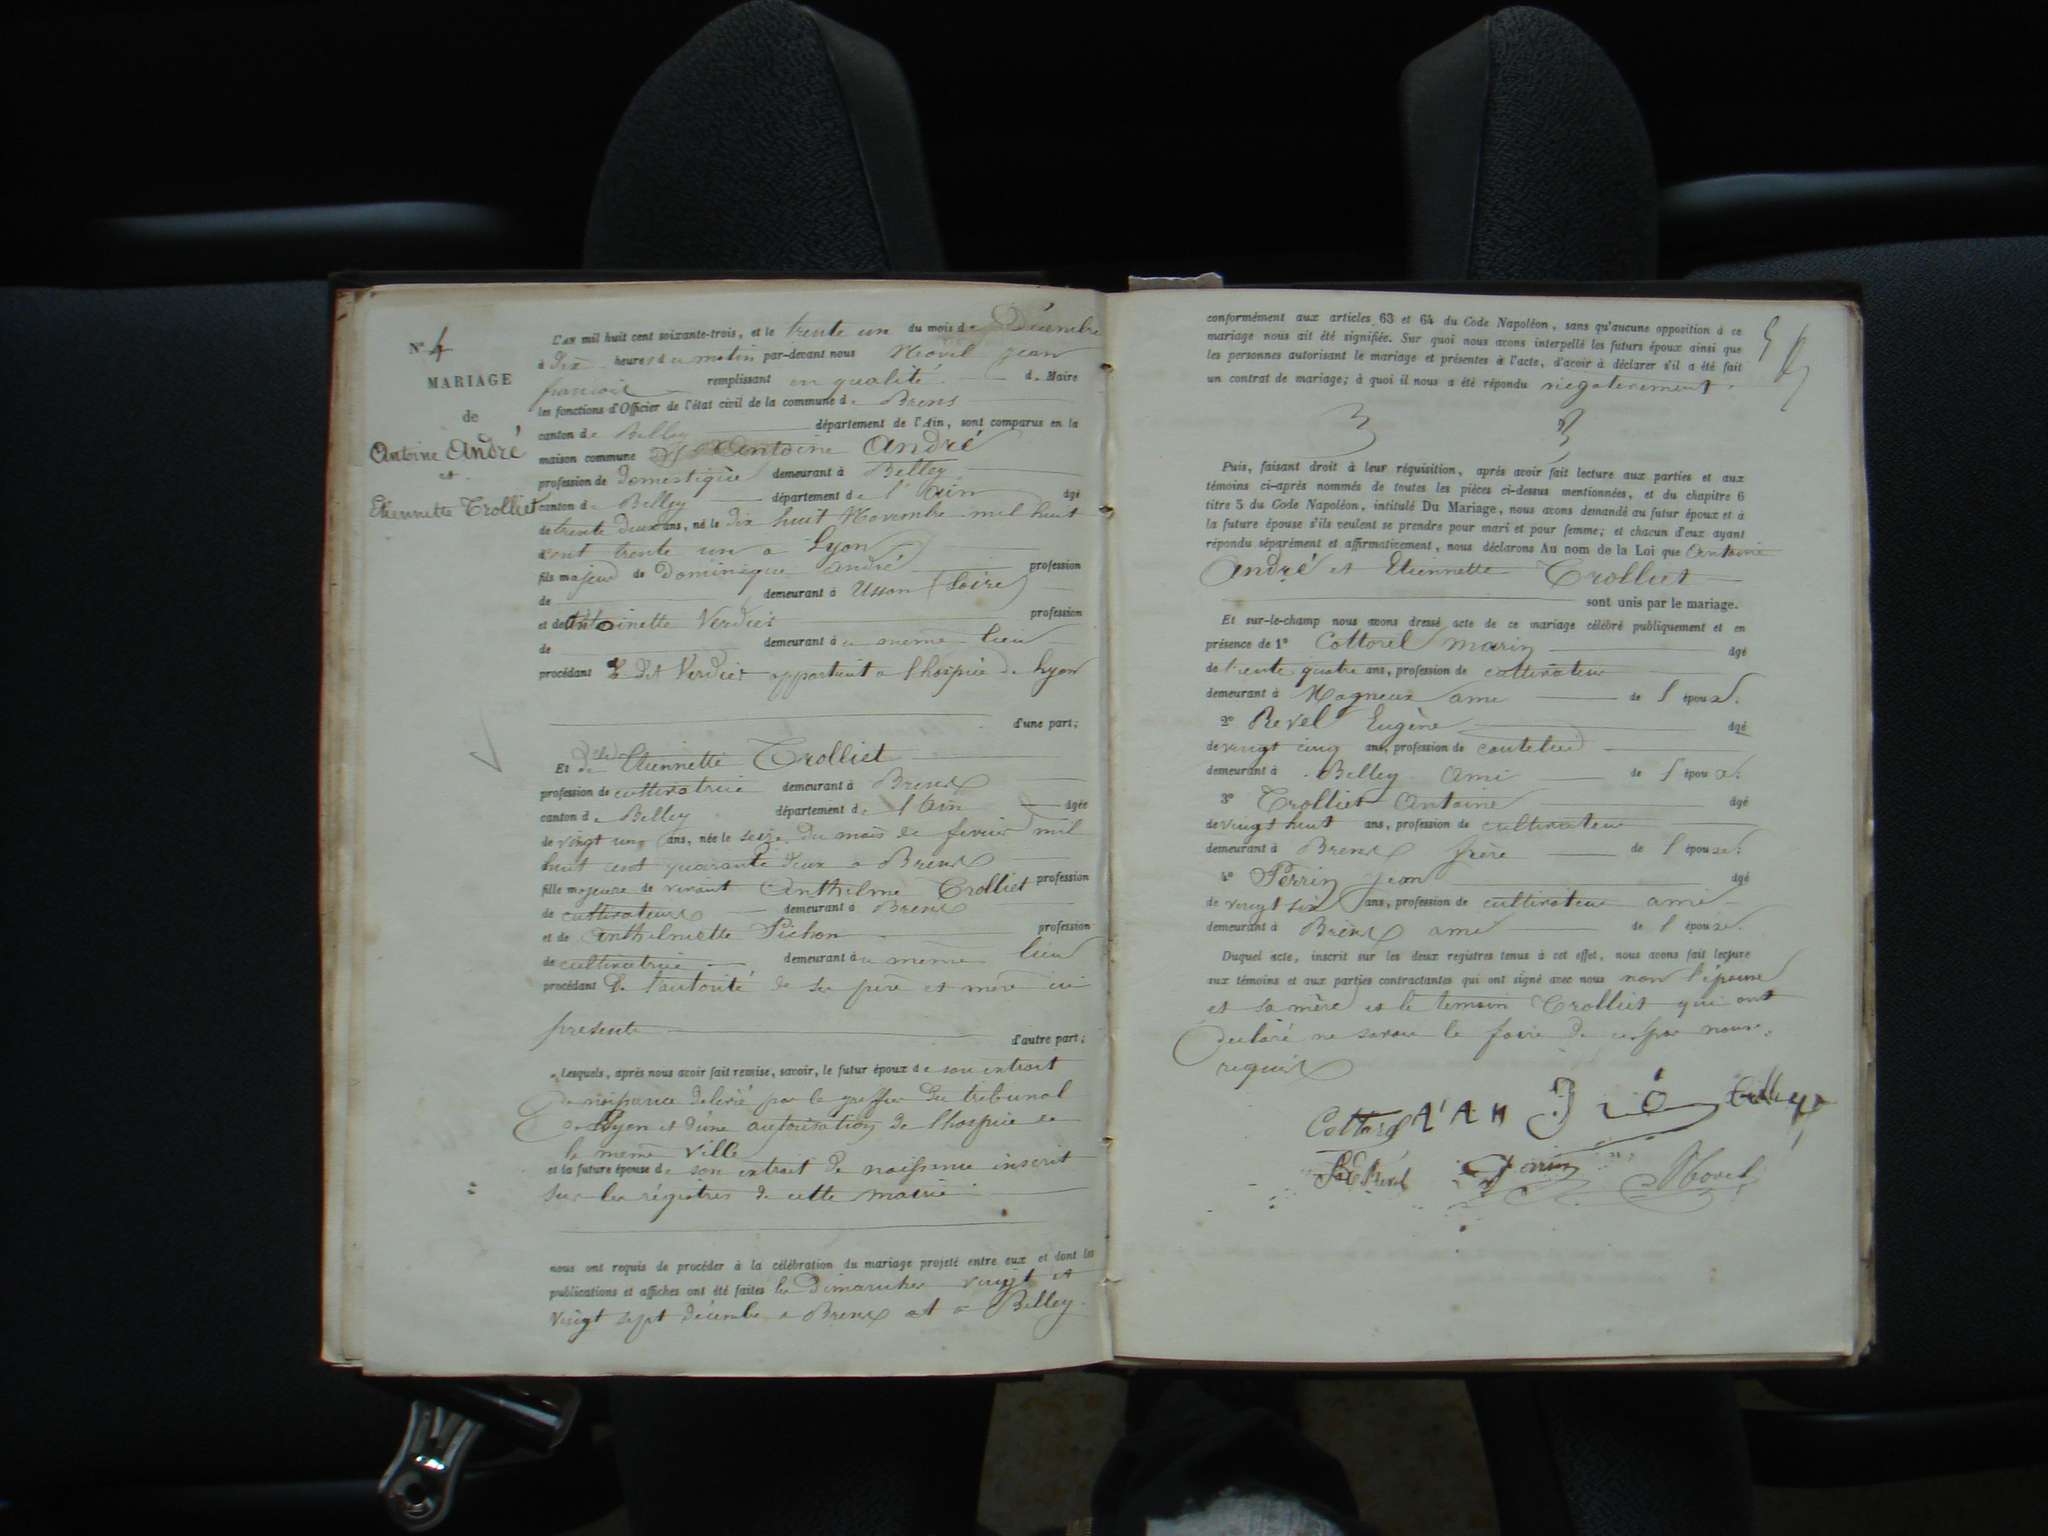 N° 4
MARIAGE
de
Antoine André
et
Etiennette Trolliet
L'AN mil huit cent soixante-trois, et le trente un du mois de Décembre
à dix heures du matin par-devant nous Novel jean
françois remplissant en qualité de Maire
les fonctions d'Officier de l'état civil de la commune de Brens
canton de Belley département de l'Ain, sont comparus en la
maison commune Antoine André
profession de domestique demeurant à Belley
canton de Belley département de l'Ain âgé
de trente deux ans, né le dix huit Novembre mil huit
cent trente un a Lyon
fils majeur de Dominique André profession
de demeurant à Usson (Loire)
et de Antoinette Verdier profession
de demeurant à u même lieu
procédant Verdier appartient a l'hospice de Lyon
d'une part;
Et Dlle Etiennette Trolliet
profession de cultivatrice demeurant à Brens
canton de Belley département de l'Ain âgée
de vingt un ans, née le seize du mois de fevrier mil
huit cent quarante deux a Brens
fille majeure de vivant Anthelme Trolliet profession
de cultivateurs demeurant à Brens
et de Anthelmette Pichon profession
de cultivatrice demeurant à u meme lieu
procédant de l'autorité de ses père et mère ici
presents d'autre part;
Lesquels, après nous avoir fait remise, savoir, le futur époux de son extrait
de naissance delivré par le greffier du tribunal
de Lyon et d'une autorisation de l'hospice de
la meme ville
et la future épouse de son extrait de naissance inscrit
sur les régistres de cette mairie
nous ont requis de procéder à la célébration du mariage projeté entre eux et dont les
publications et affiches ont été faites les Dimanches vingt et
vingt sept décembre a Brens et a Belley.
conformément aux articles 63 et 64 du Code Napoléon, sans qu'aucune opposition à ce
mariage nous ait été signifiée. Sur quoi nous avons interpellé les futurs époux ainsi que
les personnes autorisant le mariage et présentes à l'acte, d'avoir à déclarer s'il a été fait
un contrat de mariage; à quoi il nous a été répondu négativement.
Puis, faisant droit à leur réquisition, après avoir fait lecture aux parties et aux
témoins ci-après nommés de toutes les pièces ci-dessus mentionnées, et du chapitre 6
titre 5 du Code Napoléon, intitulé Du Mariage, nous avons demandé au futur époux et à
la future épouse s'ils veulent se prendre pour mari et pour femme; et chacun d'eux ayant
répondu séparément et affirmativement, nous déclarons Au nom de la Loi que Antoine
André et Etiennette Trolliet
sont unis par le mariage.
Et sur-le-champ nous avons dressé acte de ce mariage célébré publiquement et en
présence de 1° Cottarel marin âgé
de trente quatre ans, profession de cultivateur
demeurant à Magneux ami de l'épouse.
2° Revel Eugène âgé
de vingt cinq ans, profession de coutelier
demeurant à Belley Ami de l'époux.
3° Trolliet Antoine âgé
de vingt huit ans, profession de cultivateur
demeurant à Brens frère de l'épouse.
4° Perrin jean âgé
de vingt six ans, profession de cultivateur ami
demeurant à Brens ami de l'épouse.
Duquel acte, inscrit sur les deux registres tenus à cet effet, nous avons fait lecture
aux témoins et aux parties contractantes qui ont signé avec nous non l'épouse
et sa mère et le temoin Trolliet qui ont
déclaré ne savoir le faire de ce par nous
requis
Cottarel
Revel Perrin Novel